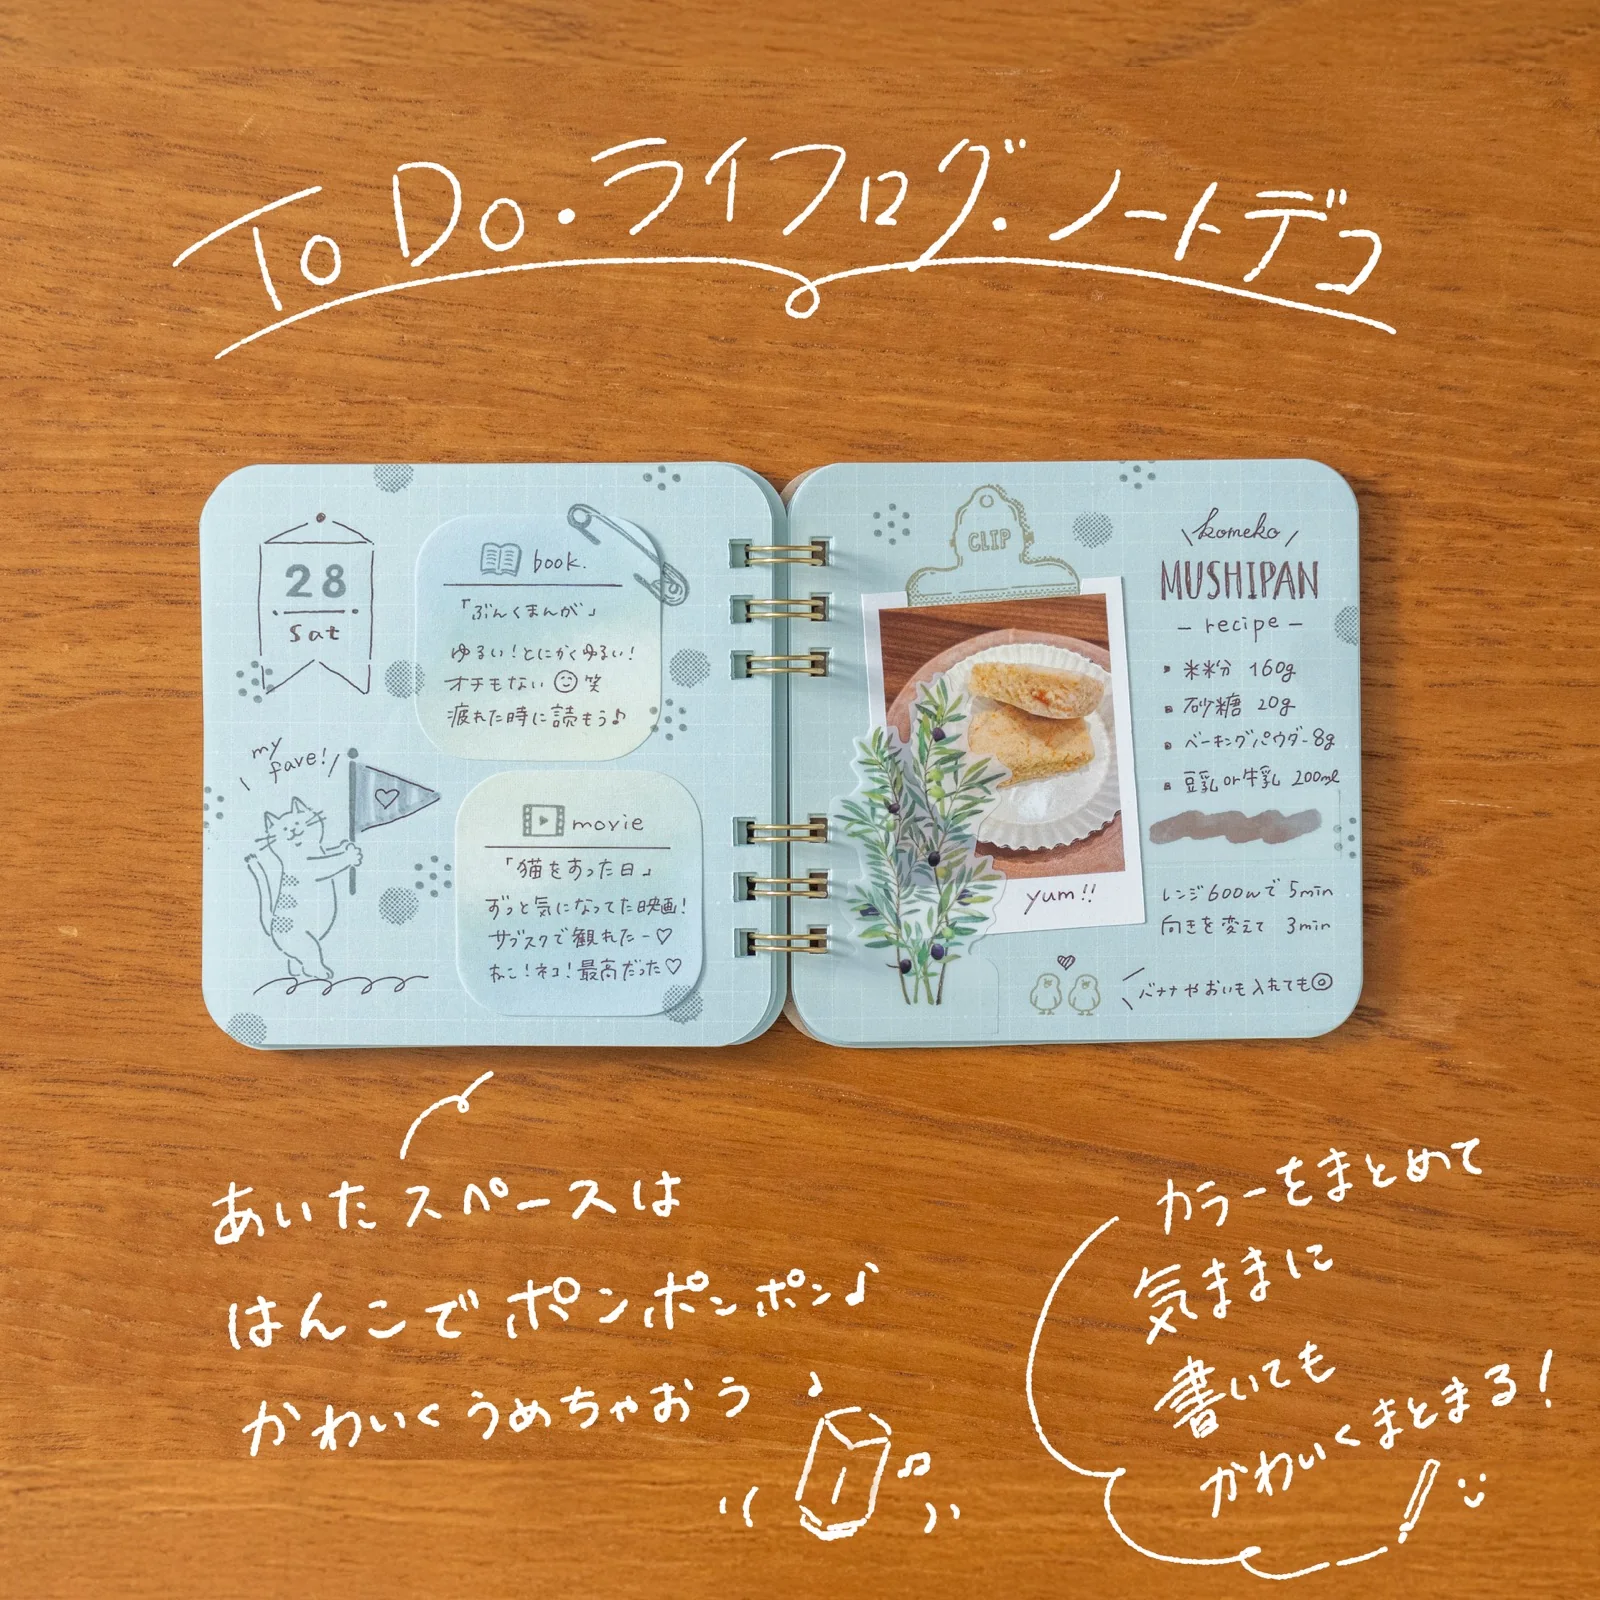 To Do・ライフログ・ノートデコ
28
Sat
my
fave!
book.
「ぶんくまんが」
ゆるい!とにかくゆるい!
オチもない 笑
疲れた時に読もう♪
movie
「猫をすった日」
ずっと気になってた映画!
サブスクで観れたー♡
ねこ!ネコ!最高だった♡
CLIP
yum!!
komeko
MUSHIPAN
- recipe -
米粉 160g
砂糖 20g
ベーキングパウダー8g
豆乳or牛乳 200ml
レンジ600wで 5min
向きを変えて 3min
バナナやおいも入れても◎
あいたスペースは
はんこでポンポンポン♪
かわいくうめちゃおう
カラーをまとめて
気ままに
書いても
かわいくまとまる!